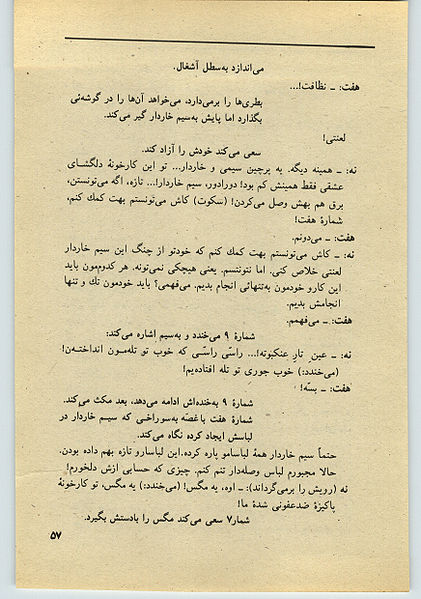 می‌اندازد به‌سطل آشغال.
هفت: ــ نظافت!...
بطری‌ها را برمی‌دارد، می‌خواهد آن‌ها را در گوشه‌ئی
بگذارد اما پایش به‌سیم خاردار گیر می‌کند.
لعنتی!
سعی می‌کند خودش را آزاد کند.
نه: ــ همینه دیگه. یه پرچین سیمی و خاردار... تو این کارخونهٔ دلگشای
عشقی فقط همینش کم بود! دورادور، سیم خاردار!... تازه، اگه می‌تونستن،
برق هم بهش وصل می‌کردن! (سکوت) کاش می‌تونستم بهت کمك کنم،
شمارهٔ هفت!
هفت: ــ می‌دونم.
نه: ــ کاش می‌تونستم بهت کمك کنم که خودتو از چنگ این سیم خاردار
لعنتی خلاص کنی. اما نتونستم. یعنی هیچکی نمی‌تونه. هر کدوم‌مون باید
این کارو خودمون به‌تنهائی انجام بدیم. می‌فهمی؟ باید خودمون تك و تنها
انجامش بدیم.
هفت: ــ می‌فهمم.
شمارهٔ ۹ می‌خندد و به‌سیم اشاره می‌کند:
نه: ــ عین تارِ عنکبوته!... راسّی راسّی که خوب تو تله‌مــون انداختــن!
(می‌خندد:) خوب جوری تو تله افتاده‌یم!
هفت: ــ بسّه!
شمارهٔ ۹ به‌خنده‌اش ادامه می‌دهد، بعد مکث می‌کند.
شمارهٔ هفت باغصّه به‌سوراخی که سیـم خاردار در
لباسش ایجاد کرده نگاه می‌کند.
حتماً سیم خاردار همهٔ لباسامو پاره کرده. این لباسارو تازه بهم داده بودن.
حالا مجبورم لباس وصله‌دار تنم کنم. چیزی که حسابی ازش دلخورم!
نه (رویش را برمی‌گرداند): ــ اوه، یه مگس! (می‌خندد:) یه مگس، تو کارخونهٔ
پاکیزهٔ ضدعفونی شدهٔ ما!
شمار۷ سعی می‌کند مگس را بادستش بگیرد.
۵۷